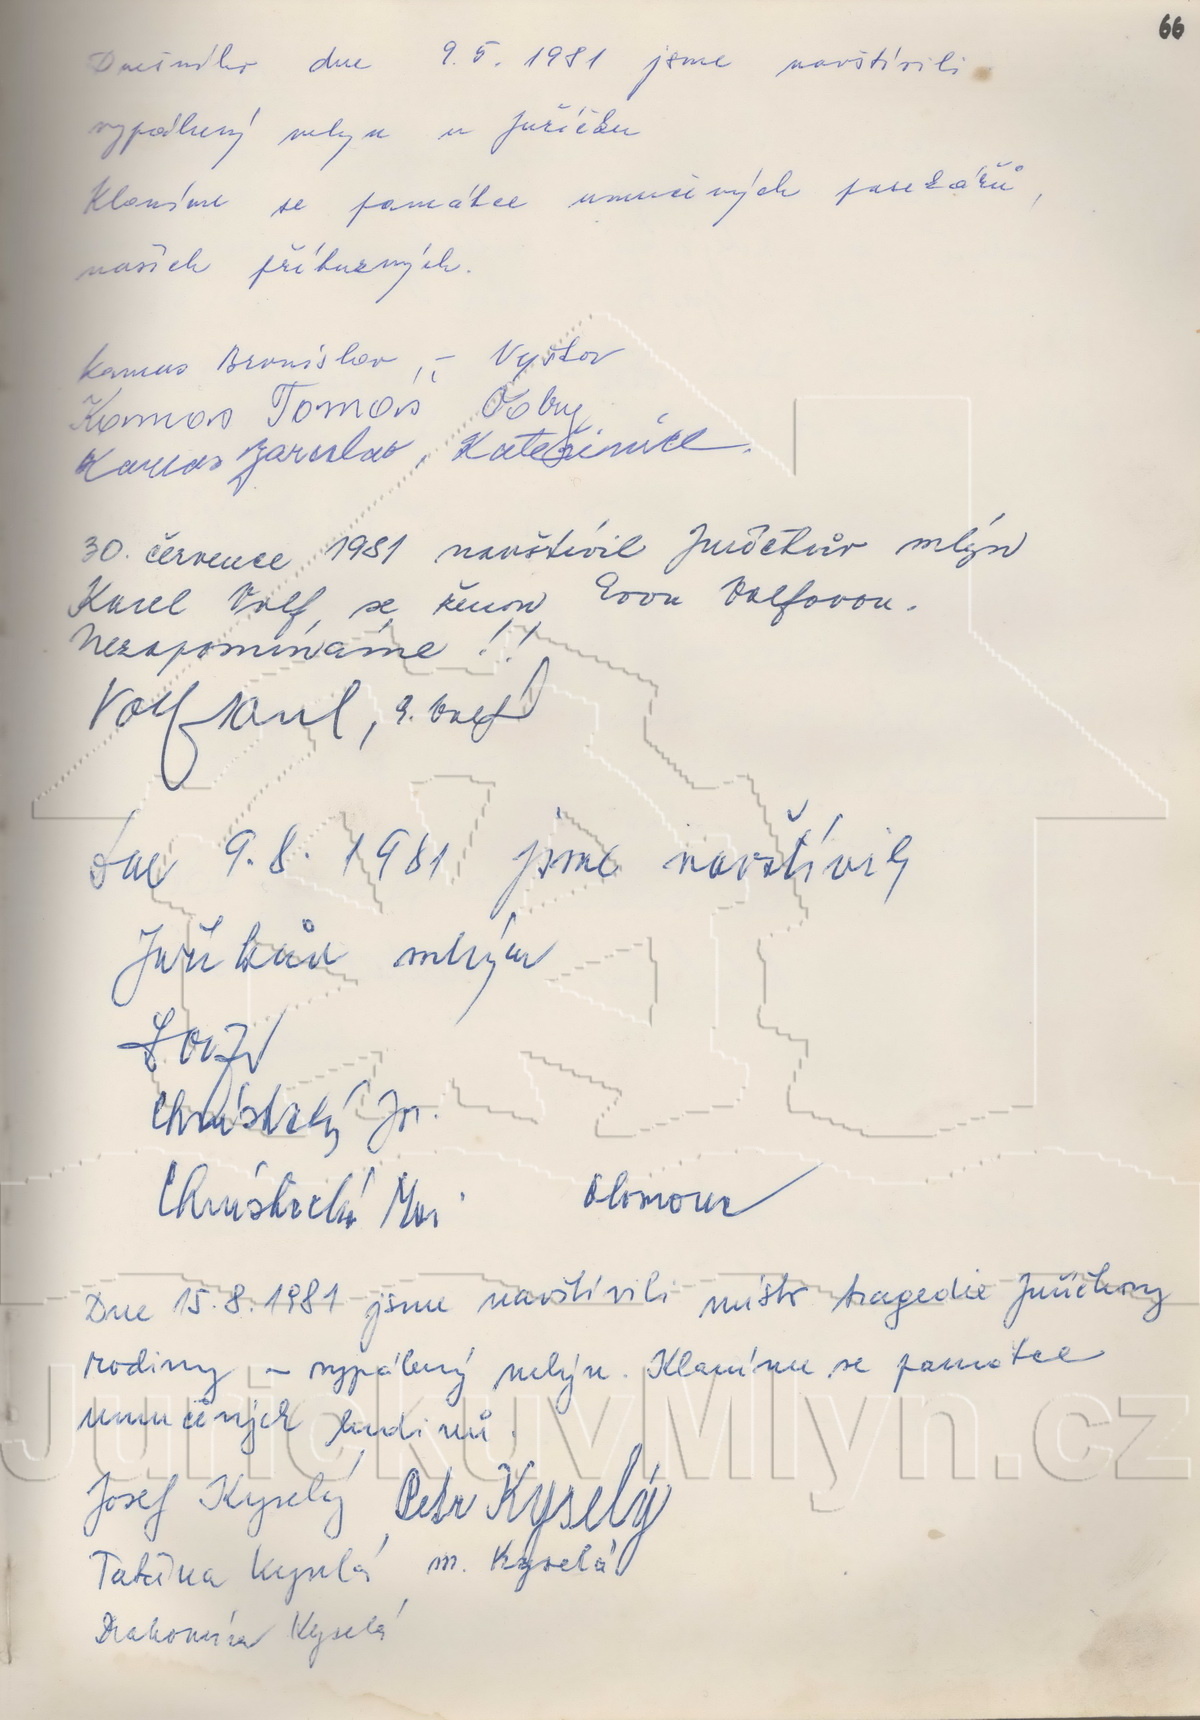 66
Dnešního dne 9.5.1981 jsme navštívili
vypálený mlýn u Juříčků
Klaníme se památce umučených pasekářů,
našich příbuzných.
Kamas Bronislav, - Vyškov
Kamas Tomáš
Kamas Jaroslav, Kateřinice.
30. července 1981 navštívil Juříčkův mlýn
Karel Volf se ženou Evou Volfovou.
Nezapomínáme !!
Volf Karel, E. Volf
Dne 9.8.1981 jsme navštívili
Juříčkův mlýn
Chrástecký Jar.
Chrástecká Mar. Olomouc
Dne 15.8.1981 jsme navštívili místo tragedie Juříčkovy
rodiny - vypálený mlýn. Klaníme se památce
umučených hrdinů.
Josef Kyselý Petr Kyselý
Taťána Kyselá M. Kyselá
Drahomíra Kyselá
JurickuvMlyn.cz